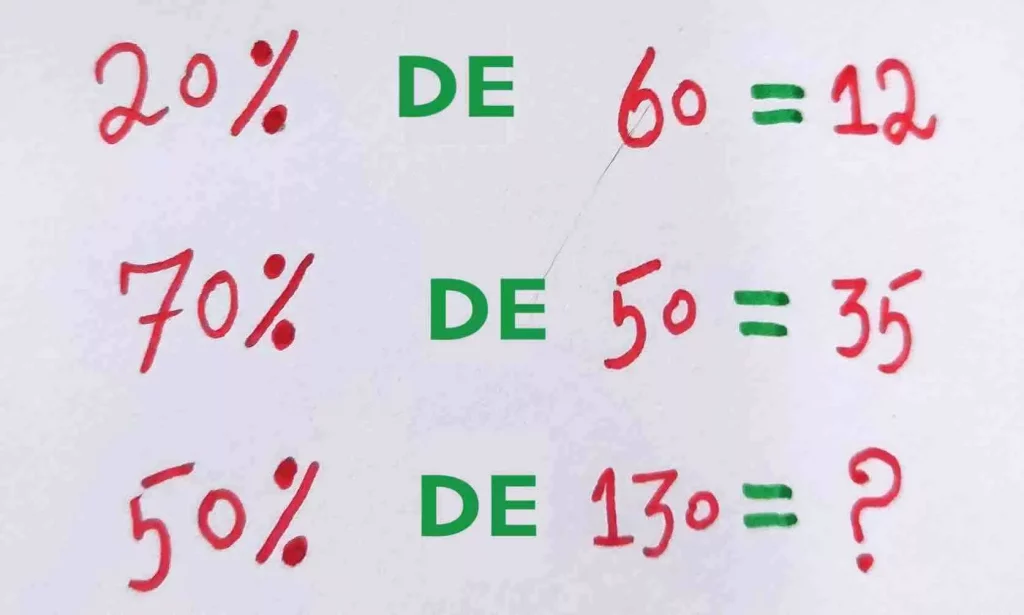 20% DE 60 = 12
70% DE 50 = 35
50% DE 130 = ?